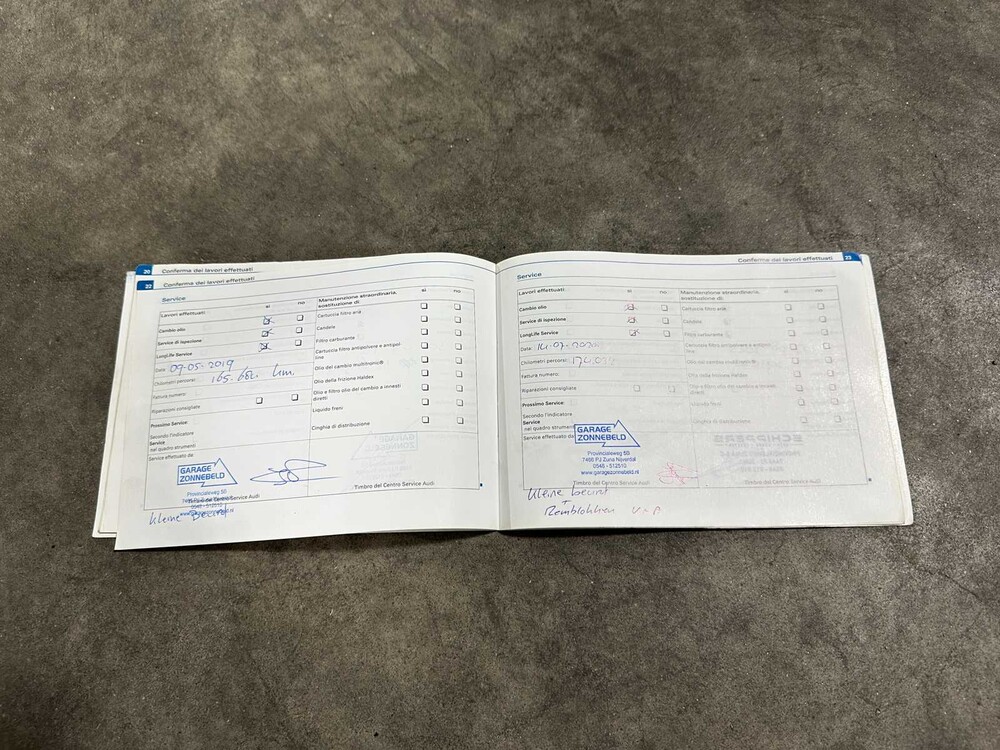 20 Conferma dei lavori effettuati
22 Conferma dei lavori effettuati
Service
Lavori effettuati:
si no
Cambio olio
Service di ispezione
LongLife Service
Data: 09-05-2019
Chilometri percorsi: 165.682. km.
Fattura numero:
Riparazioni consigliate
Prossimo Service:
Secondo l'indicatore
Service
nel quadro strumenti
Service effettuato da:
Manutenzione straordinaria,
sostituzione di:
si no
Cartuccia filtro aria
Candele
Filtro carburante
Cartuccia filtro antipolvere e antipol-
line
Olio del cambio multitronic®
Olio della frizione Haldex
Olio e filtro olio del cambio a innesti
diretti
Liquido freni
Cinghia di distribuzione
GARAGE
ZONNEBELD
Provincialeweg 50
7466 PJ Zuna Nijverdal
0548 - 512510
www.garagezonnebeld.nl
Timbro del Centro Service Audi
Kleine Beurt
Conferma dei lavori effettuati 23
Service
Lavori effettuati:
si no
Cambio olio
Service di ispezione
LongLife Service
Data:
Chilometri percorsi:
Fattura numero:
Riparazioni consigliate
Prossimo Service:
Secondo l'indicatore
Service
nel quadro strumenti
Service effettuato da:
Manutenzione straordinaria,
sostituzione di:
si no
Cartuccia filtro aria
Candele
Filtro carburante
Cartuccia filtro antipolvere e antipol-
line
Olio del cambio multitronic®
Olio della frizione Haldex
Olio e filtro olio del cambio a innesti
diretti
Liquido freni
Cinghia di distribuzione
GARAGE
ZONNEBELD
Provincialeweg 50
7466 PJ Zuna Nijverdal
0548 - 512510
www.garagezonnebeld.nl
Timbro del Centro Service Audi
Kleine beurt
Remblokken V + A